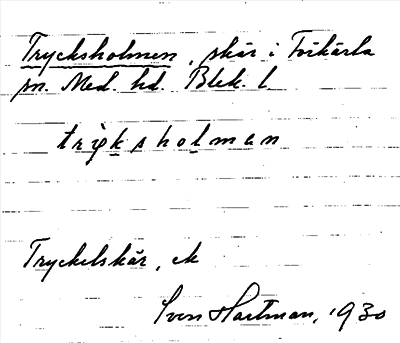 Trycksholmen, skär i Förkärla
sn. Med. hd. Blek. l.
trỳksholman
Tryckelskär, ek
Sven Hartman, 1930